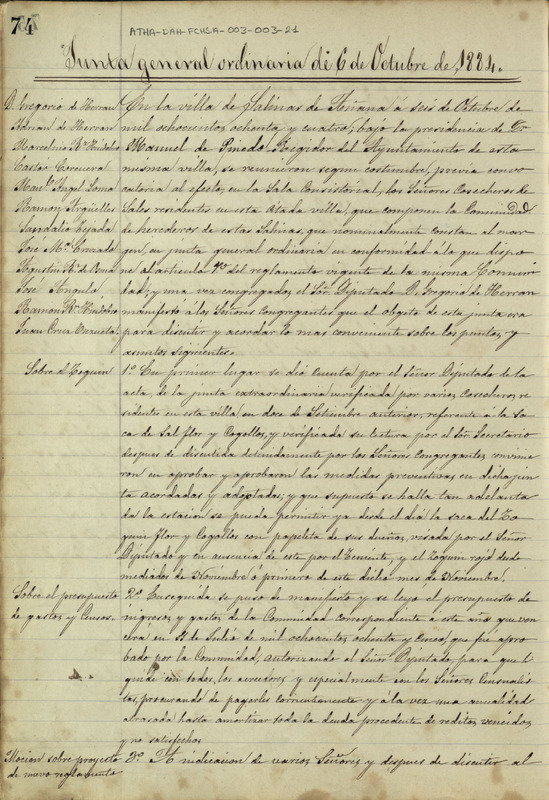 74
ATHA-DAH-FCHSA-003-003-21
Junta general ordinaria de 6 de Octubre de 1884.
D. Gregorio de Herran
Adrian de Herran
Marcelino Rz Huidobro
Castor Coronera
Manl Angel Loma
Ramon Argüelles
Sandalio Tejada
José Ma Cruzado
Agustin Rz de Pena
José Angulo
Ramon Rz Huidobro
Juan Cruz
En la villa de Salinas de Añana á seis de Octubre de
mil ochocientos ochenta y cuatro, bajo la presidencia de Dn
Manuel de Pinedo, Regidor del Ayuntamiento de esta
misma villa, se reunieron segun costumbre, previa convo
catoria al efecto, en la Sala Consistorial, los Señores Cosecheros de
Sales residentes en esta citada villa, que componen la Comunidad
de herederos de estas Salinas, que nominalmente constan al mar
gen, en junta general ordinaria en conformidad á lo que dispo
ne al articulo del reglamento vigente de la misma Comuni
dad; y una vez congregados el Sor Diputado D. Gregorio de Herran
manifestó á los Señores Congregantes que el objeto de esta junta era
para discutir y acordar lo mas conveniente sobre los puntos y
asuntos siguientes.
Sobre el Zoquin
1o En primer lugar se dió cuenta por el Señor Diputado de la
acta, de la junta extraordinaria verificada por varios Cosecheros re
sidentes en esta villa, en doce de Setiembre anterior, referente á la sa
ca de sal flor y Cogollos, y verificada su lectura por el Sor Secretario
despues de discutida detenidamente por los Señores Congregantes convinie
ron en aprobar y aprobaron las medidas preventivas en dicha jun
ta acordadas y adoptadas; y que supuesto se halla tan adelanta
da la estacion se pueda permitir ya desde el dia la saca del Zo
quin flor y Cogollos con papeleta de sus dueños, visada por el Señor
Diputado y en ausencia de este por el Teniente, y el Zoquin rojo desde
mediados de Noviembre ó primero de este dicho mes de Noviembre.
Sobre el presupuesto
de gastos y Censos.
2o Enseguida se puso de manifiesto y se leyo el presupuesto de
ingresos y gastos de la Comunidad correspondiente á este año que ven
cera en 31 de Julio de mil ochocientos ochenta y cinco, que fué apro
bado por la Comunidad, autorizando al Señor Diputado, para que li
quide con todos los acreedores y especialmente con los Señores Censualis
tas, procurando de pagarles corrientemente y á la vez una anualidad
atrasada hasta amortizar toda la deuda procedente de reditos vencidos
y no satisfechos.
Mocion sobre proyecto
de nuevo reglamento
3o A indicacion de varios Señores y despues de discutir al